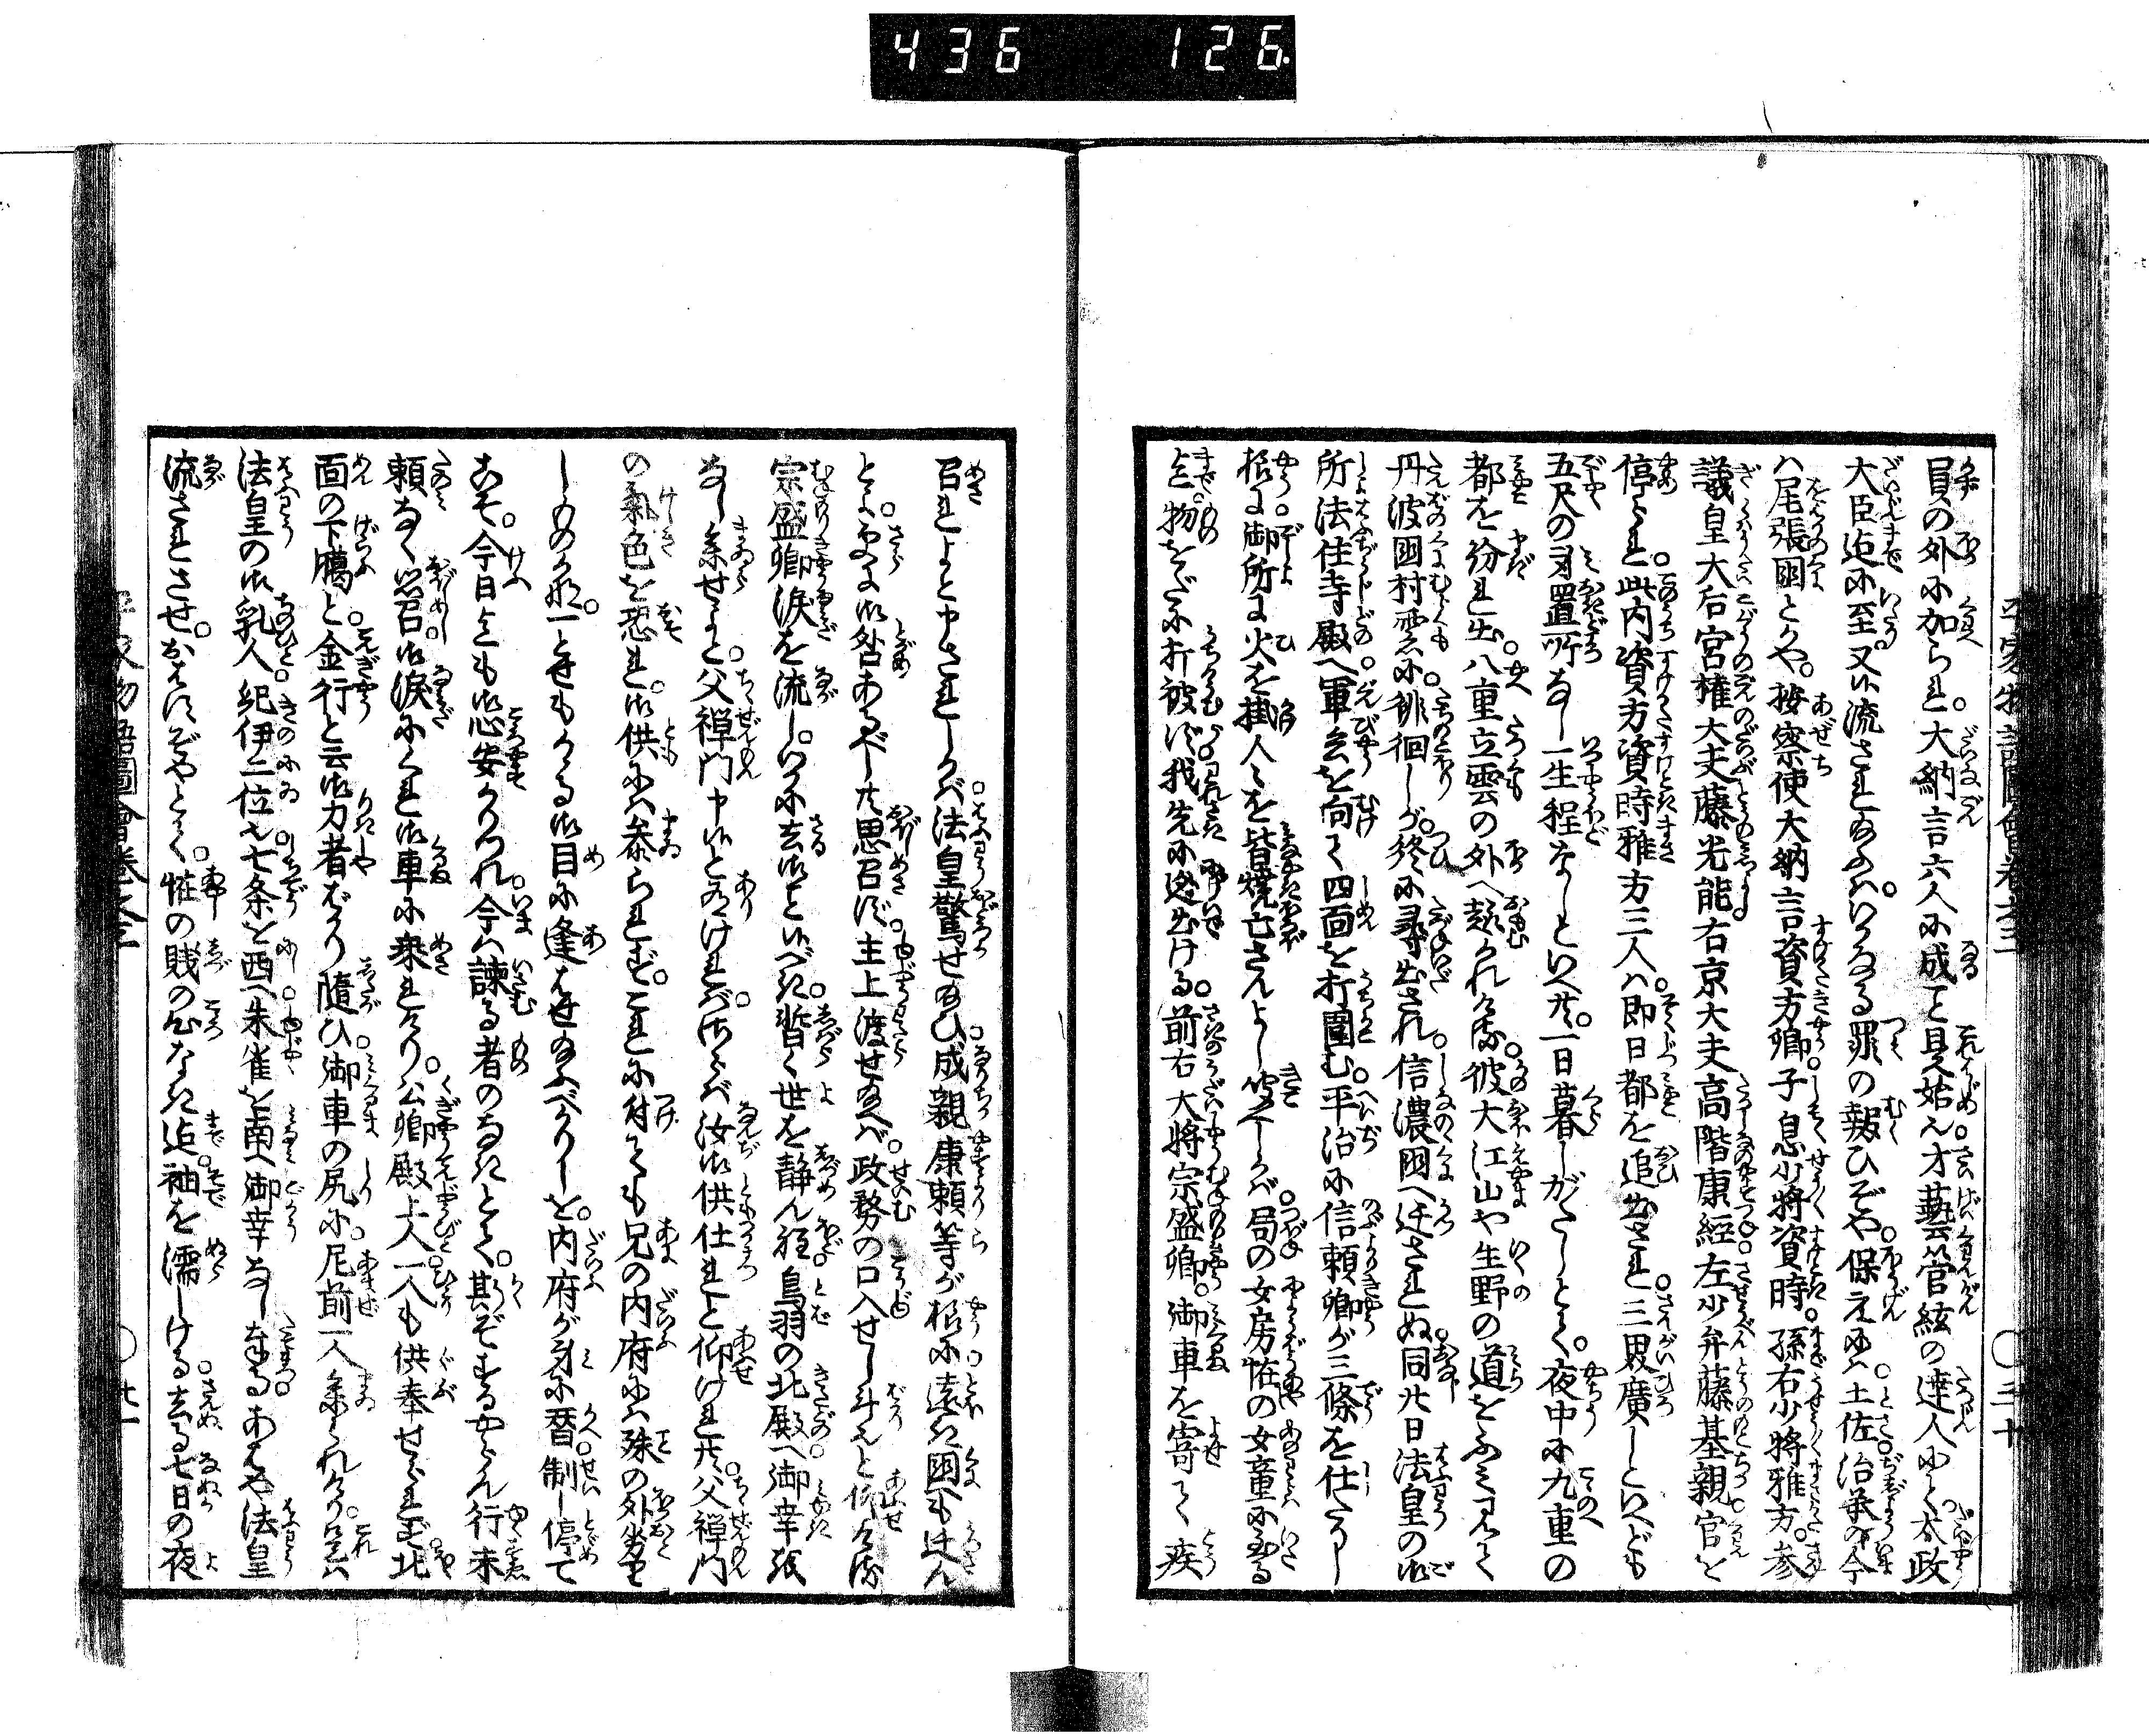 436 126
平家物語圖會巻之三 〇三十
員の外に加られ。大納言六人に成こと見始ん。才藝管絃の達人にて。太政
大臣迄に至。又は流され給ふは。いかなる罪の報ひぞや。保元には。土佐。治承の今
ハ尾張國とかや。按察使大納言資方卿。子息少将資時。孫右少将雅方。参
議皇大后宮権大夫藤光能右京大夫高階康経左少弁藤基親官を
停らる。此内資方資時雅方三人ハ。即日都を追出さる。三界廣しといへども
五尺の身置所なし一生程なしといへ共。一日暮しがたしとて。夜中に九重の
都を紛れ出。八重立雲の外へ趣かれける。彼大江山や生野の道をふみわけて
丹波國村雲に。徘徊しが終に尋出され。信濃國へ迁されぬ同廿日法皇の御
所法住寺殿へ。軍兵を向て四面を打圍む。平治に信頼卿が三條を仕たりし
様に。御所に火を掛人々を皆焼亡さんよし。聞へしかば。局の女房恠の女童に至る
迄。物をだに打被ず。我先に迯出ける。前右大将宗盛卿。御車を寄て疾
召れよと申されしかば。法皇驚せ給ひ。成親康頼等が様に。遠き國へも迁さん
とよ。更に御咎あるべし共思召ず。主上渡せ給へば。政務の口入せし斗也と仰ける
宗盛卿涙を流し。いかに去御ことゝいべき。暫く世を静ん程。鳥羽の北殿へ御幸
なし参せよと。父禅門申いと有けれバ。さらば汝御供仕れと仰けれ共。父禅門
の氣色を恐れ。御供にハ参られず。これに付ても兄の内府にハ殊の外劣
しものかな。一とせもかゝる御目に逢せ給ふべかりしを。内府が身に替制し停て
こそ。今日迄も御心安かりつれ。今ハ諫る者のなきとて。斯ぞするやらん行末
頼なく思召。御涙にくれ御車に乗れけり。公卿殿上人一人も供奉せられず。北
面の下臈と。金行と云御力者ばかり随ひ。御車の尻に。尼前一人参られけり。是ハ
法皇の御乳人。紀伊二位也。七条を西へ朱雀を南へ御幸なし奉る。あはや法皇
流されさせ。おはすぞやとて。恠の賎の心なき迄。袖を濡しける。去る七日の夜
平家物語圖會巻之三 〇丗一